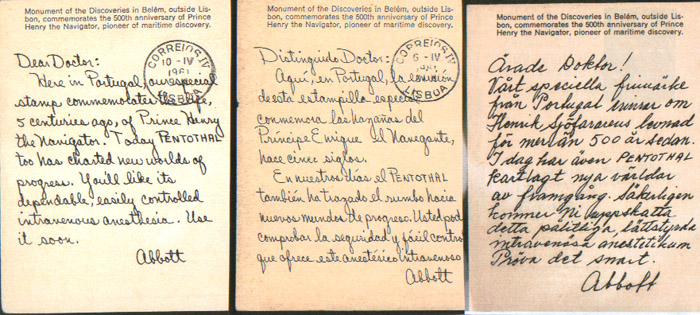 Monument of the Discoveries in Belém, outside Lis-
bon, commemorates the 500th anniversary of Prince
Henry the Navigator, pioneer of maritime discovery.
Dear Doctor:
Here in Portugal, our special
stamp commemorates the life,
5 centuries ago, of Prince Henry
the Navigator. Today PENTOTHAL
too has charted new worlds of
progress. You'll like its
dependable, easily controlled
intravenous anesthesia. Use
it soon.
Abbott
CORREIOS
10-IV
1961
LISBOA
Monument of the Discoveries in Belém, outside Lis-
bon, commemorates the 500th anniversary of Prince
Henry the Navigator, pioneer of maritime discovery.
Distinguido Doctor:
Aquí, en Portugal, la emisión
de esta estampilla especial
conmemora las hazañas del
Príncipe Enrique el Navegante,
hace cinco siglos.
En nuestros días el PENTOTHAL
también ha trazado el rumbo hacia
nuevos mundos de progreso. Usted pod
comprobar la seguridad y fácil contro
que ofrece este anestésico intravenoso
Abbott
CORREIOS
6-IV
LISBOA
Monument of the Discoveries in Belém, outside Lis-
bon, commemorates the 500th anniversary of Prince
Henry the Navigator, pioneer of maritime discovery.
Ärade Doktor!
Vårt speciella frimärke
från Portugal minner om
Henrik Sjöfararens levnad
för mer än 500 år sedan.
I dag har även PENTOTHAL
kartlagt nya världar
av framgång. Säkerligen
kommer Ni uppskatta
detta pålitliga, lättstyrda
intravenösa anestetikum
Pröva det snart.
Abbott